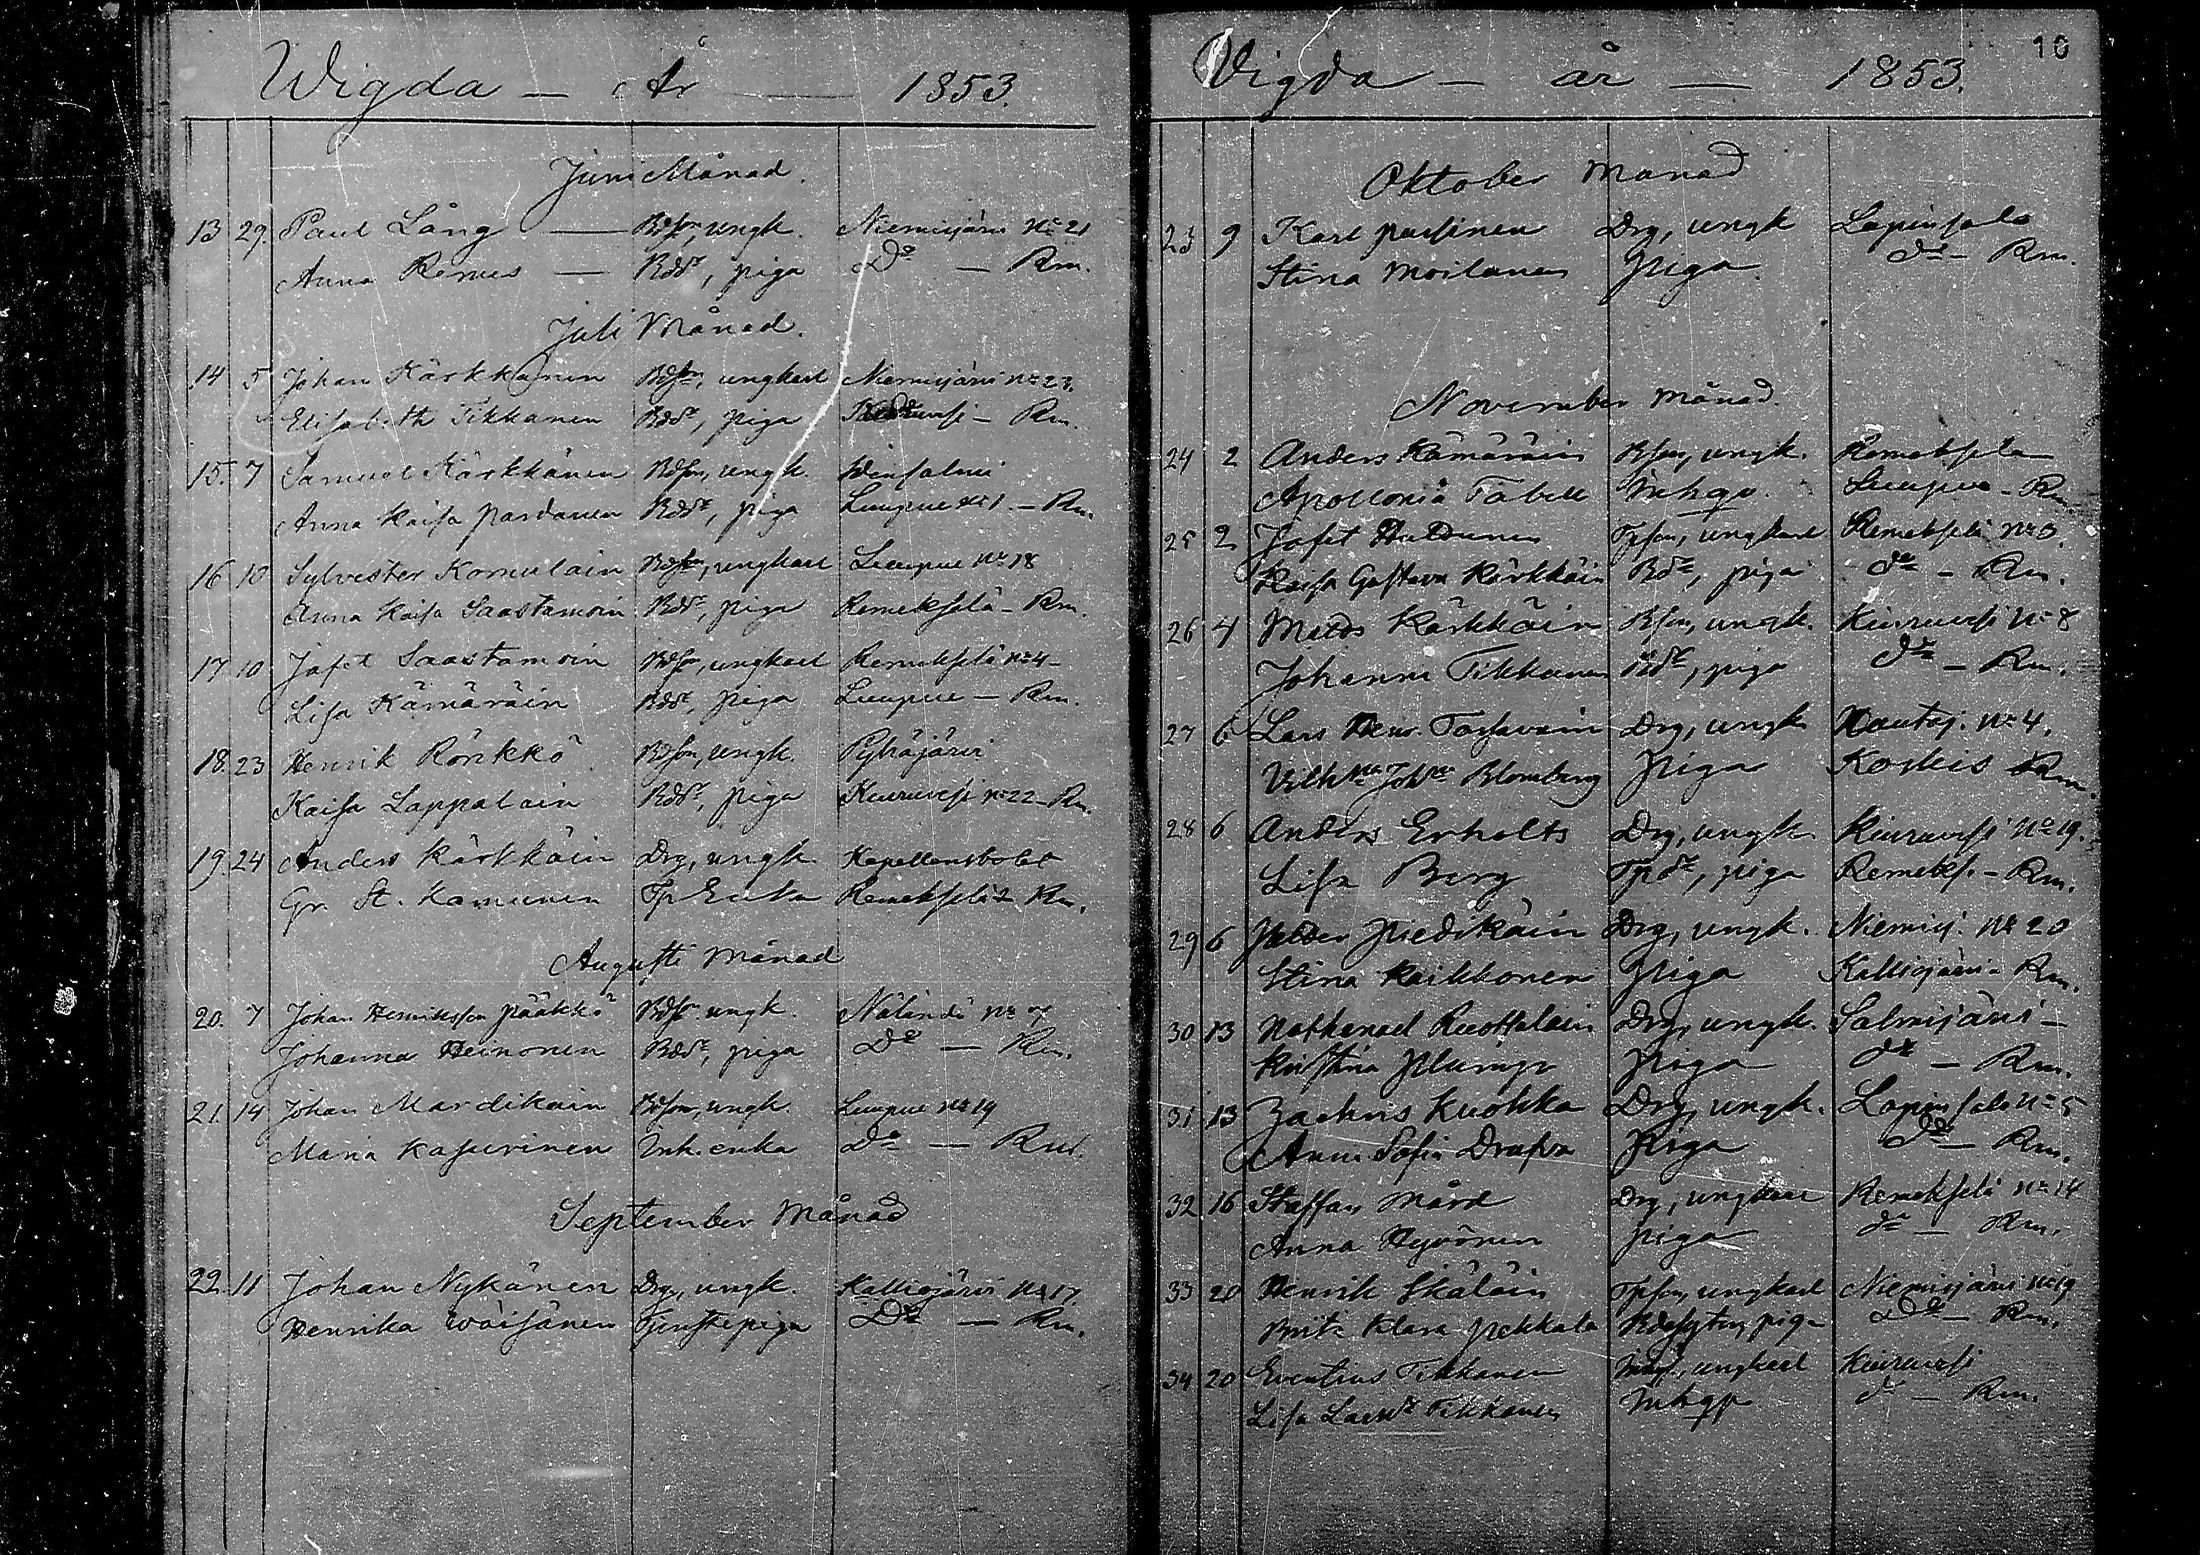 Wigda — År — 1853.
Juni Månad.
13 29. Paul Lång — Bdson, ungk. Niemisjärvi No 21
Anna Remes — Bddr, piga Do — Rm.
Juli Månad.
14 5 Johan Kärkkänen Bdson, ungkarl Niemisjärvi No 23.
Elisabeth Tikkanen Bddr, piga — Rm.
15. 7 Samuel Kärkkänen Bdson, ungk. Idensalmi
Anna Kaisa Pardanen Bddr, piga Luupue No 1. — Rm.
16 10 Sylvester Komulain Bdson, ungkarl Luupue No 18
Anna Kaisa Saastamoin Bddr, piga Remekselä — Rm.
17 10 Jafet Saastamoin Bdson, ungkarl Remekselä No 4 —
Lisa Kämäräin Bddr, piga Luupue — Rm.
18. 23 Henrik Rönkkö Bdson, ungk. Pyhäjärvi
Kaisa Lappalain Bddr, piga Kiuruvesi No 22 — Rm.
19. 24 Anders Kärkkäin Drg, ungk. Kapellansbolet
Gr. St. Kamunen Tp Enka Remekselä 2 Rm.
Augusti Månad
20. 7 Johan Henriksson Pääkkö Bdson ungk. Näländö No 7
Johanna Heinonen Bddr, piga Do — Rm.
21. 14 Johan Mardikain Bdson, ungk. Luupue No 19
Maria Kasurinen Inh. enka Do — Rm.
September Månad
22. 11 Johan Nykänen Drg, ungk. Kalliojärvi No 17.
Henrika Wäisänen Tjenstepiga Do — Rm.
10
Vigda — år — 1853.
Oktober Månad
23 9 Karl Passinen Drg, ungk Lapinsalo
Stina Moilanen Piga. do — Rm.
November Månad.
24 2 Anders Kämäräin Bson, ungk. Remekselä
Apollonia Tabell Inhqv. Luupue — Rm
25 2 Jafet Huldunen Tpson, ungkarl Remekselä No 3.
Kaisa Gustava Kärkkäin Bdr, piga do — Rm.
26 4 Matts Kärkkäin Bson, ungk. Kiuruvesi No 8
Johanna Tikkanen Bdr, piga do — Rm.
27 6 Lars Henr. Tossavain Drg, ungk Hautoj. No 4.
Vilhna Johna Blomberg Piga Koskis Rm.
28 6 Anders Erholts Drg, ungk. Kiuruvesi No 19.
Lisa Berg Tpdr, piga Remeks. — Rm.
29 6 Petter Piedikäin Drg, ungk. Niemisj. No 20
Stina Keikkonen Piga Kalliojärvi — Rm.
30 13 Nathanael Ruottalain Drg, ungk. Salmijärvi —
Kristina Plump Piga do — Rm.
31 13 Zachris Kuokka Drg, ungk. Lapinsalo No 5
Anna Sofia Drafva Piga do — Rm.
32 16 Staffan Mård Drg, ungkarl Remekselä No 14
Anna Hyvönen piga do — Rm.
33 20 Henrik Skäläin Tpson, ungkarl Niemisjärvi No 19
Brita Klara Pekkala piga Do — Rm.
34 20 Eventius Tikkanen ungkarl Kiuruvesi
Lisa Larsdr Tikkanen Inhqv do — Rm.